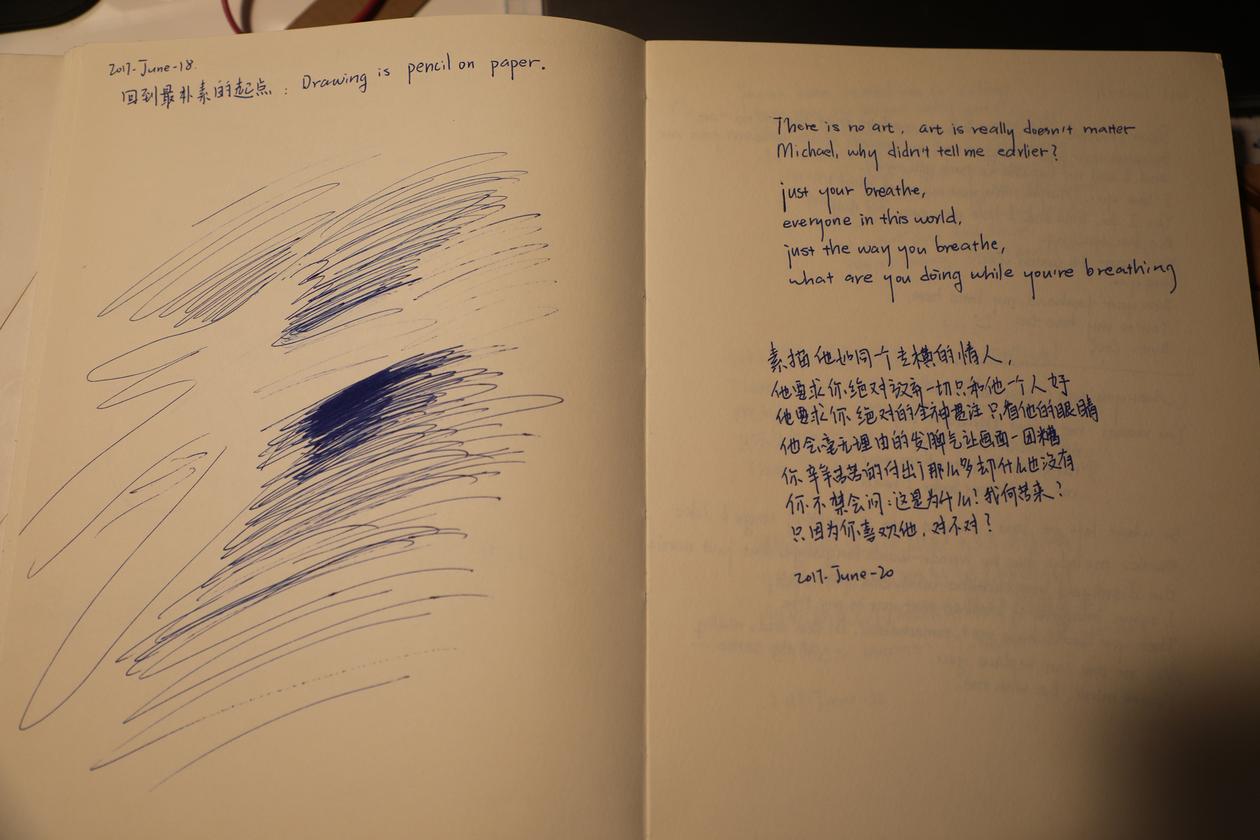 2017-June-18.
回到最朴素的起点：Drawing is pencil on paper.
There is no art, art is really doesn't matter
Michael, why didn't tell me earlier?
just your breathe,
everyone in this world,
just the way you breathe,
what are you doing while you're breathing
素描他如同个专横的情人，
他要求你绝对放弃一切只和他一个人好
他要求你绝对的全神贯注 只看他的眼睛
他会毫无理由的发脾气让画面一团糟
你辛辛苦苦的付出了那么多却什么也没有
你不禁会问：这是为什么！我何苦来？
只因为你喜欢他，对不对？
2017-June-20